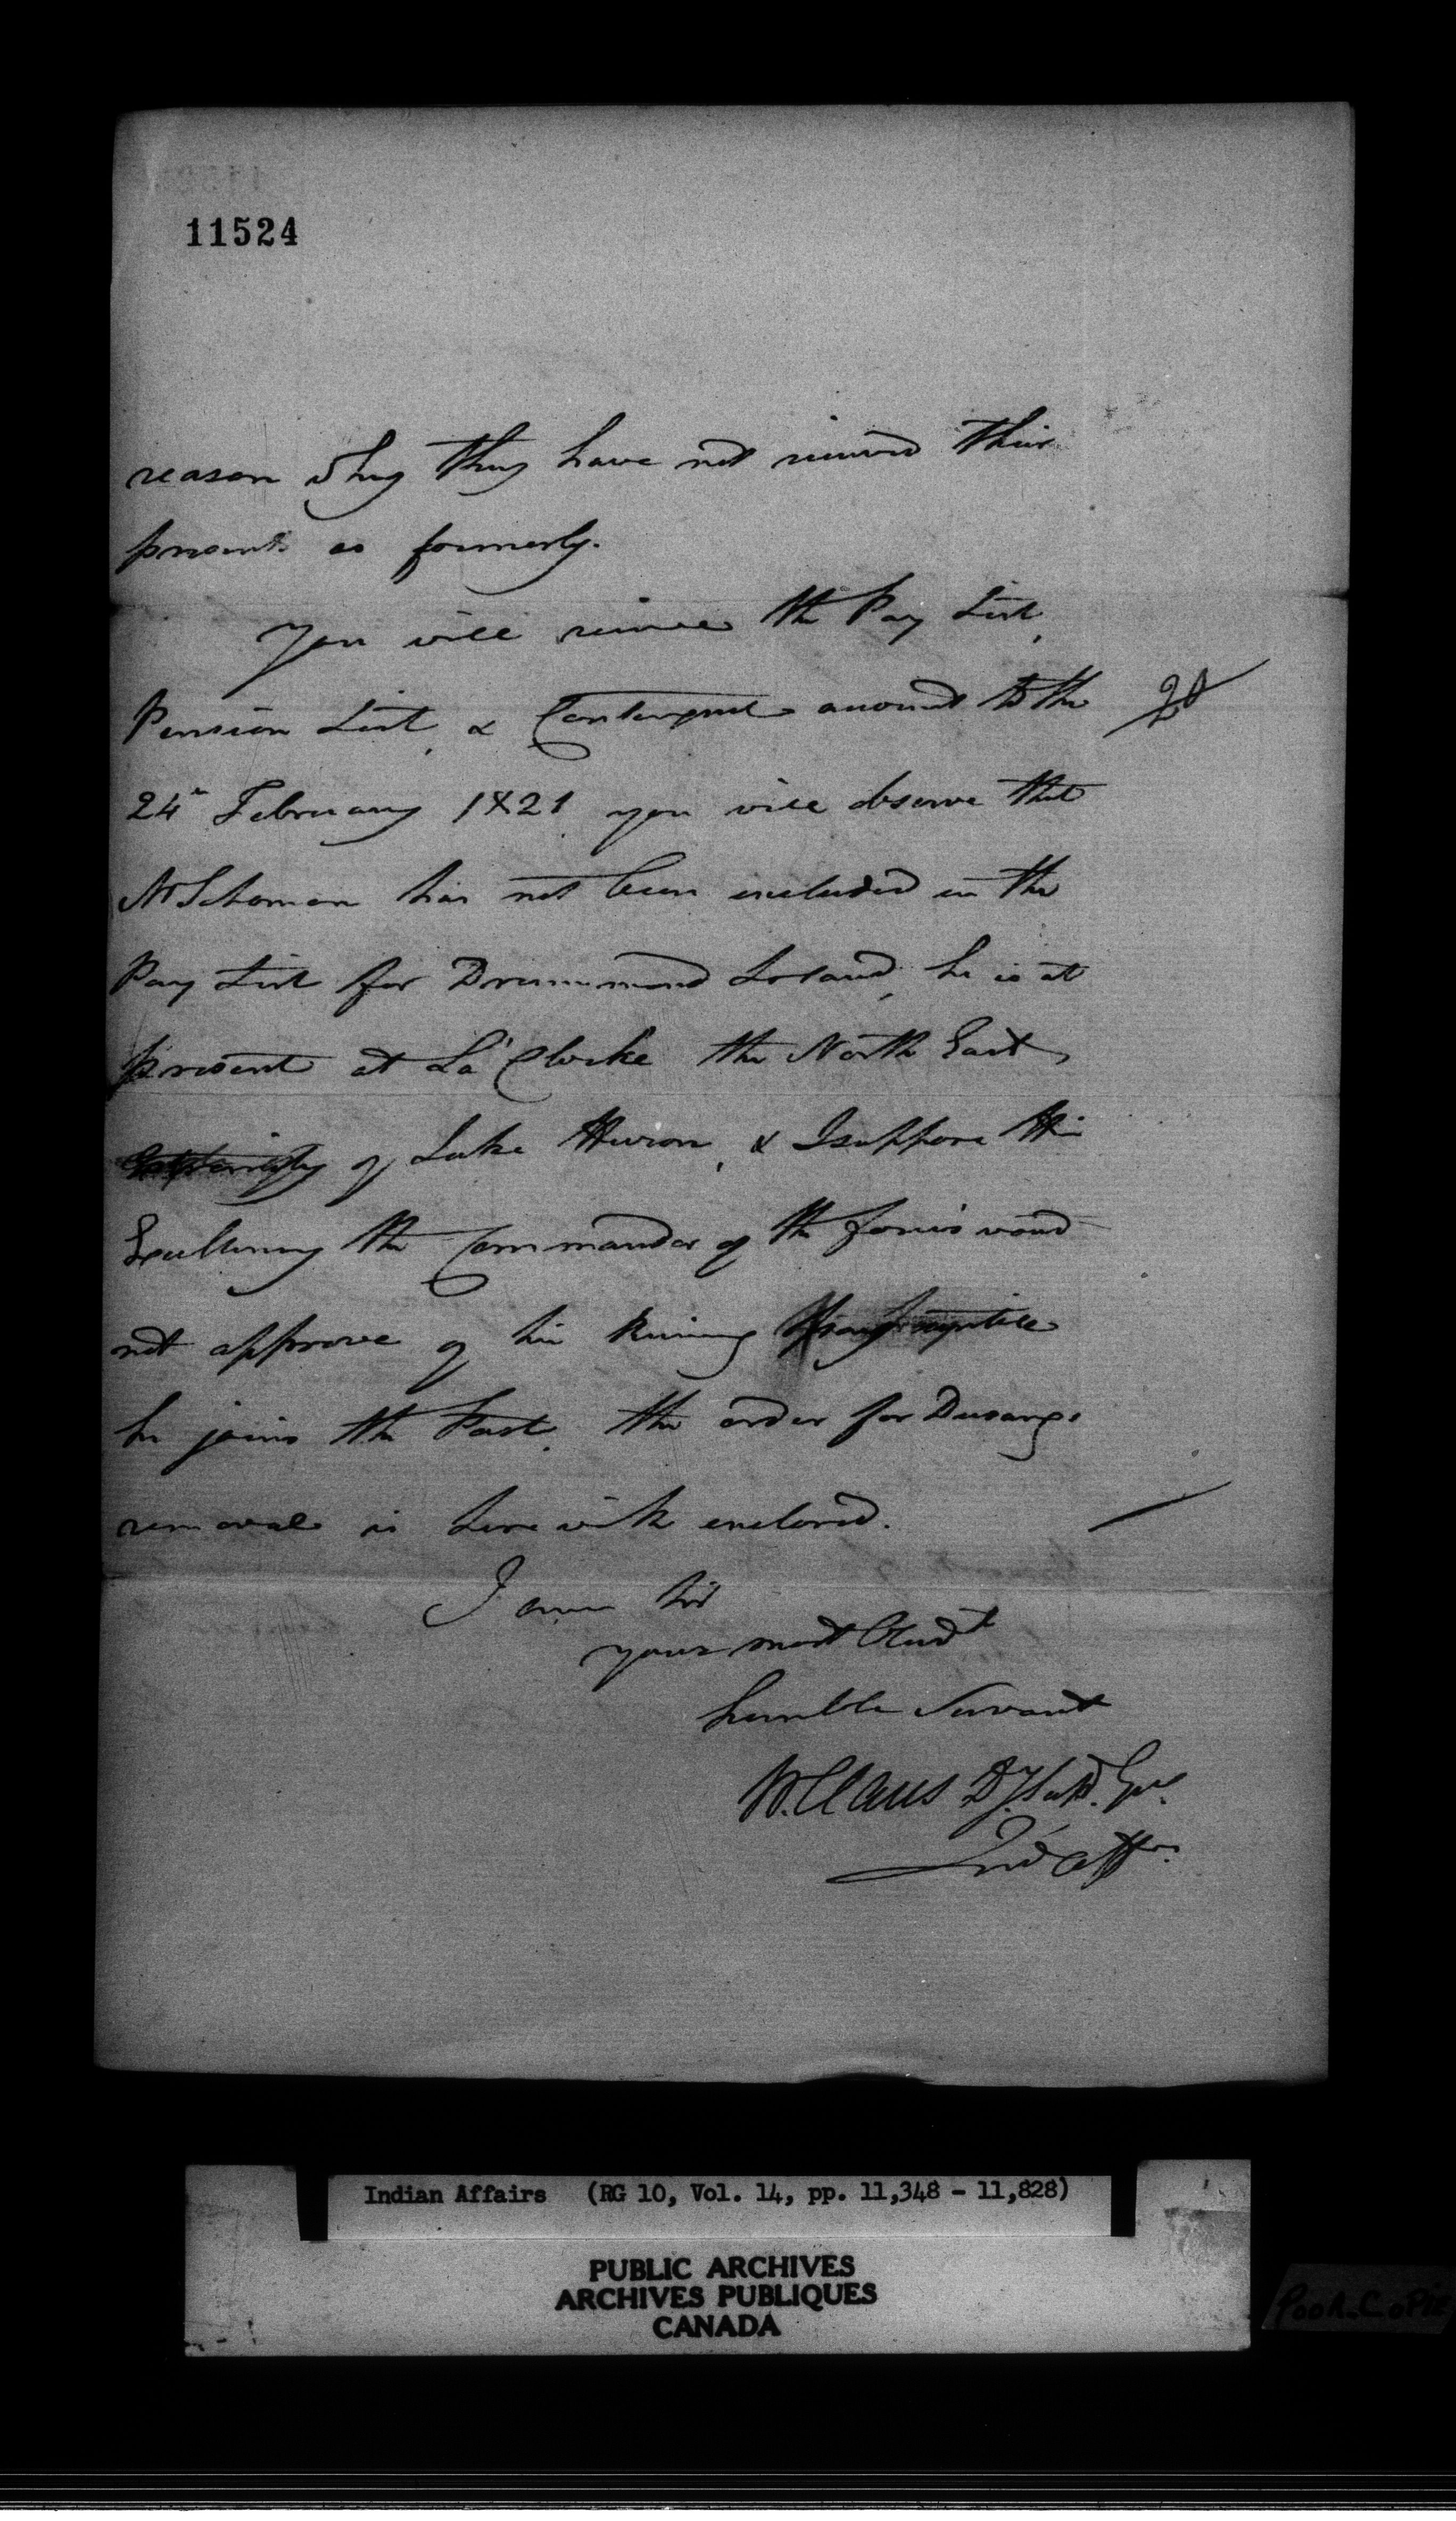 11524
reason why they have not received their
presents as formerly.
You will receive the Pay List,
Pension List, & Contingent account to the
24th February 1821 you will observe that
Mr Solomon has not been included in the
Pay List for Drummond Island, he is at
present at La Cloche the North East
extremity of Lake Huron, & I suppose His
Excellency the Commander of the forces would
not approve of his Receiving pay until
he joins the Post. the order for Dusang's
removal is herewith enclosed.
I am Sir
your most Obedt
humble Servant
W. Claus D.J. Supt. Genl.
Ind Affrs.
Indian Affairs (RG 10, Vol. 14, pp. 11,348 - 11,828)
PUBLIC ARCHIVES
ARCHIVES PUBLIQUES
CANADA
POOR COPIE